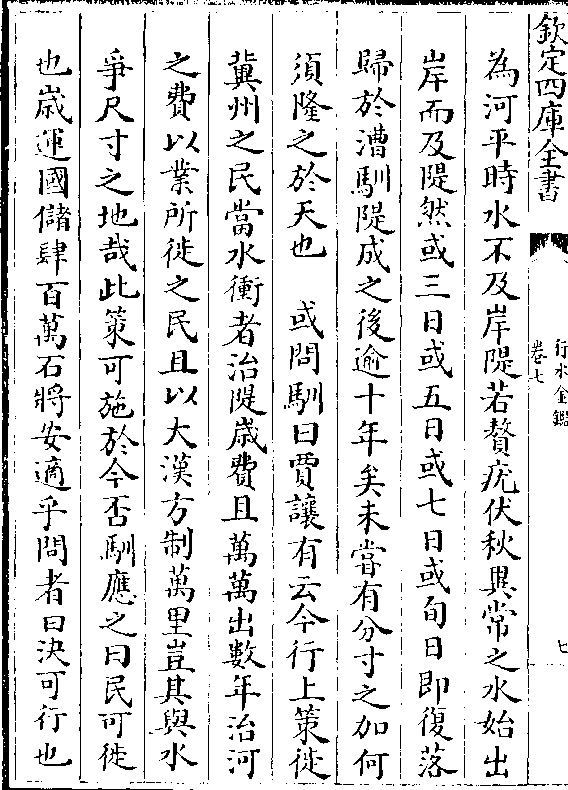 欽定四庫全書
行水金鑑
卷七
七
為河平時水不及岸隄若贅疣伏秋異常之水始出
岸而及隄然或三日或五日或七日或旬日即復落
歸於漕馴隄成之後逾十年矣未嘗有分寸之加何
須隆之於天也　或問馴曰賈讓有云今行上策徙
冀州之民當水衝者治隄嵗費且萬萬出數年治河
之費以業所徙之民且以大漢方制萬里豈其與水
爭尺寸之地哉此策可施於今否馴應之曰民可徙
也嵗運國儲肆百萬石將安適乎問者曰決可行也